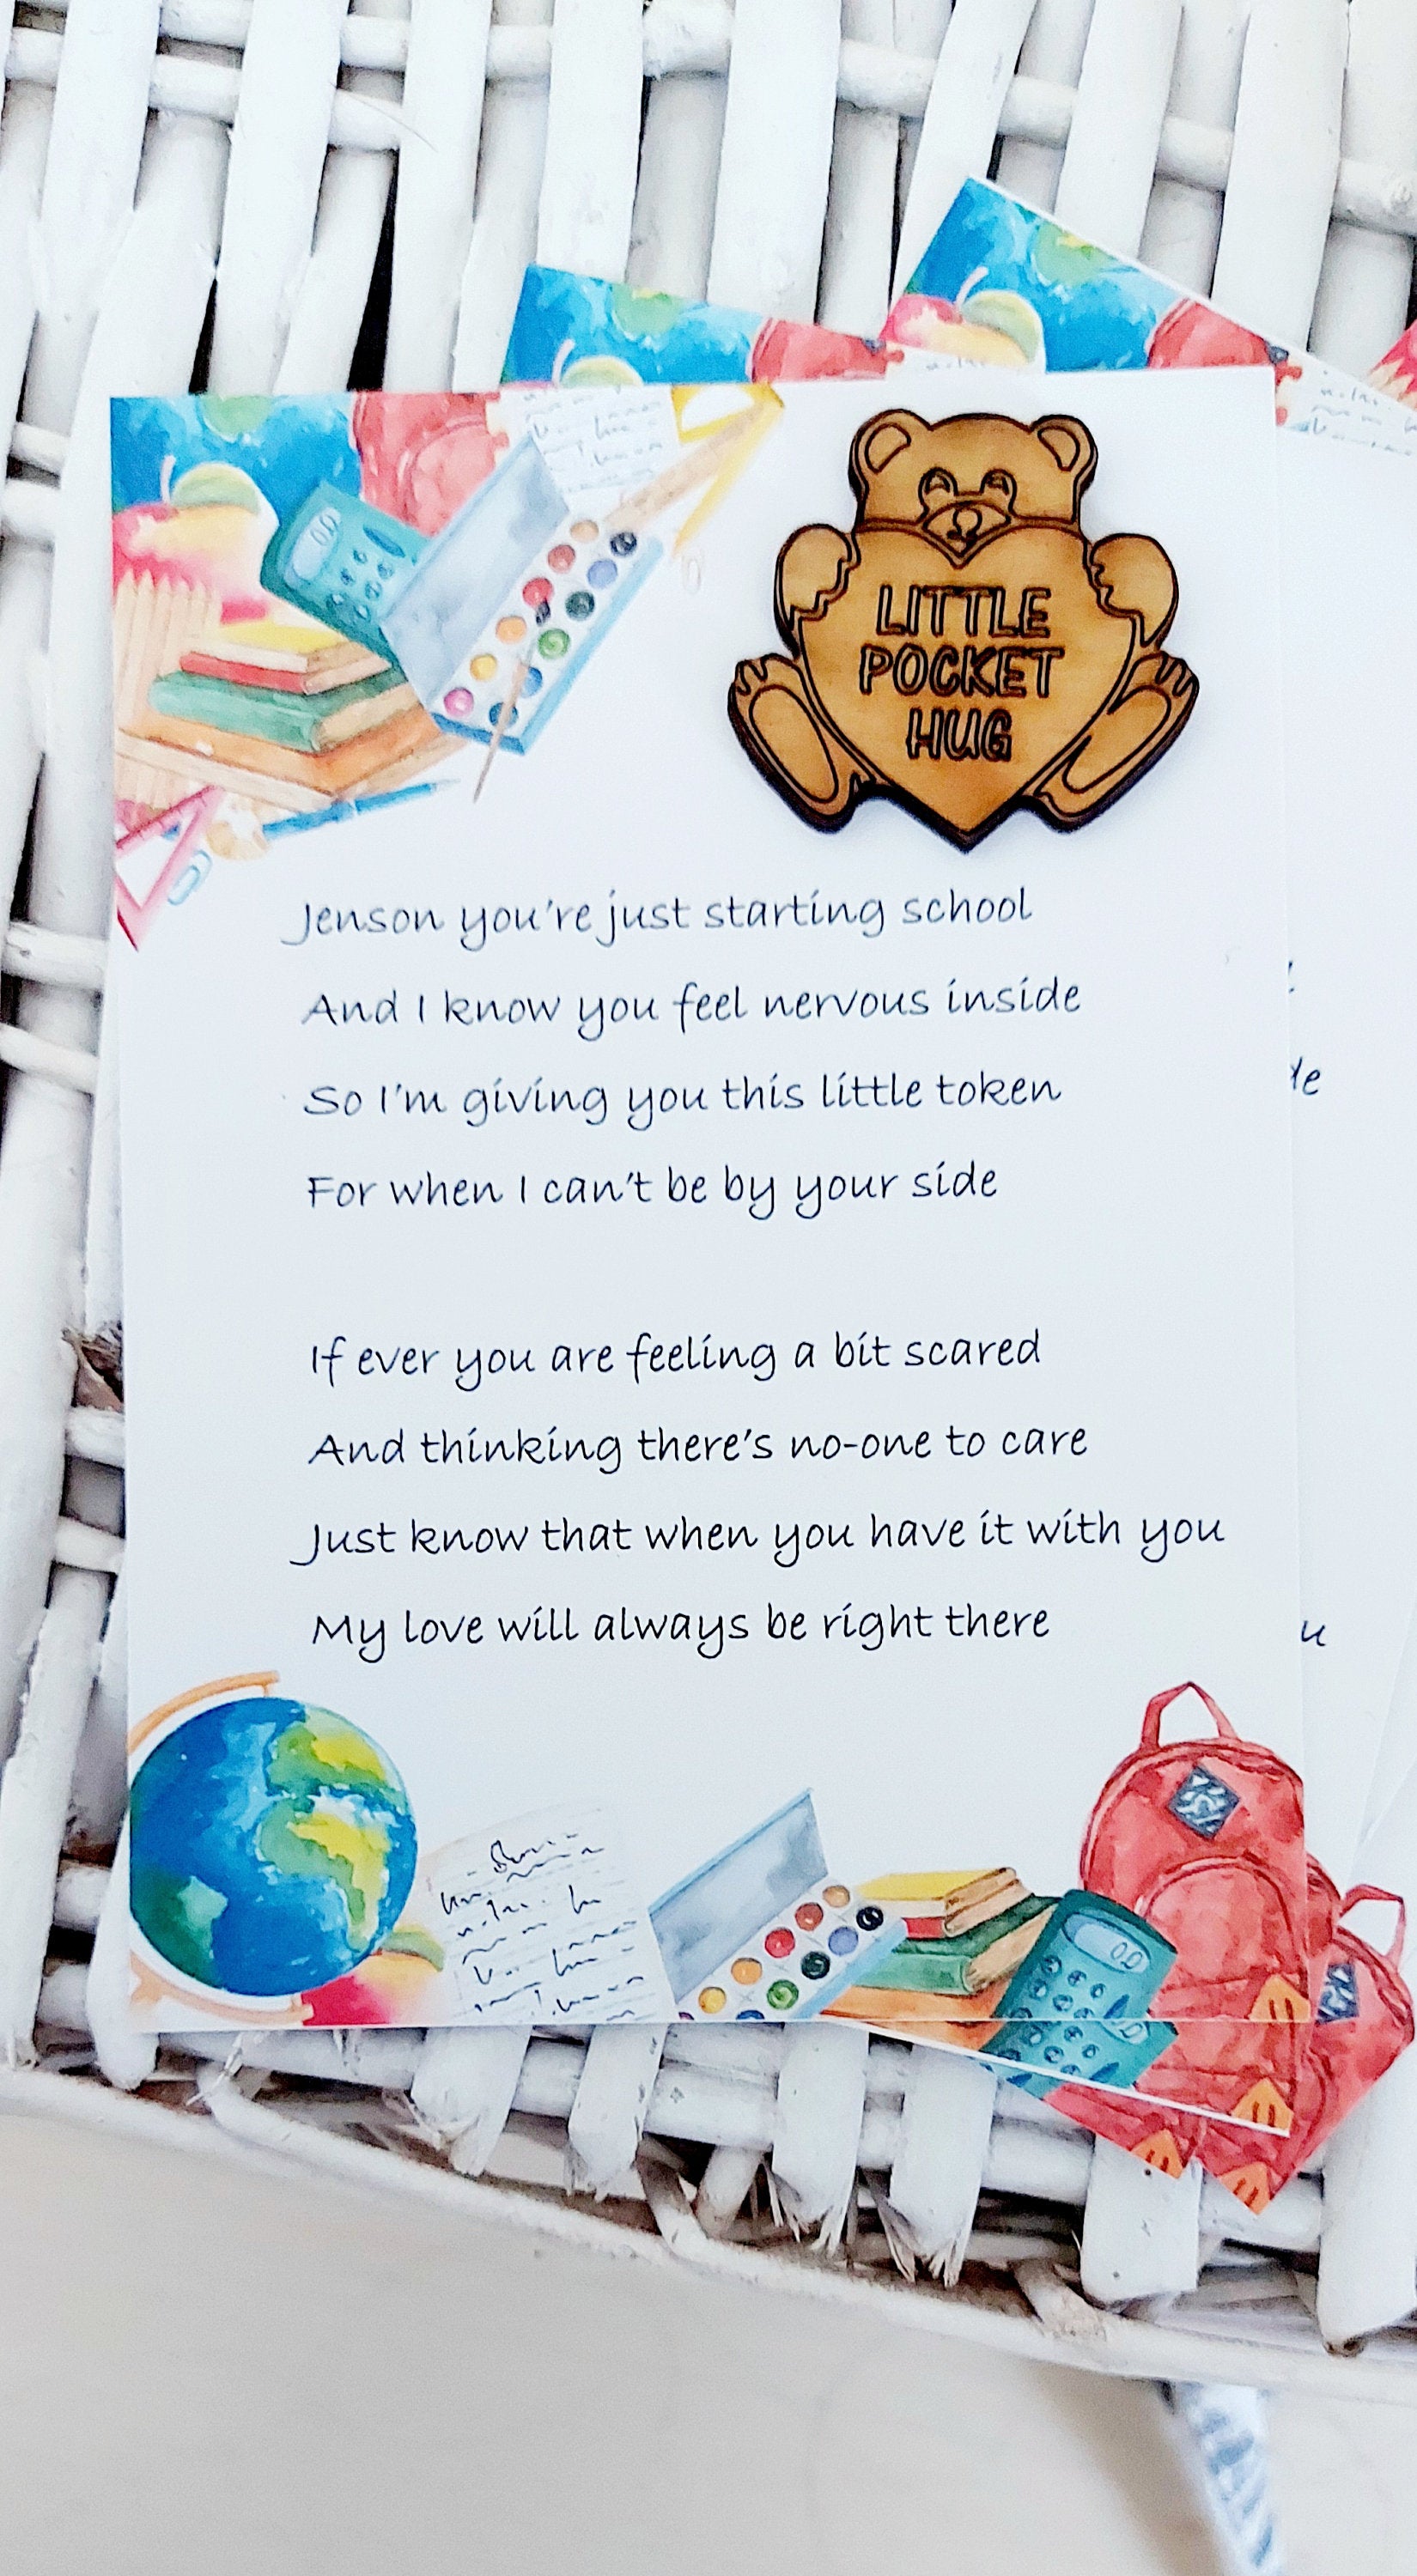 LITTLE
POCKET
HUG
Jenson you're just starting school
And I know you feel nervous inside
So I'm giving you this little token
For when I can't be by your side
If ever you are feeling a bit scared
And thinking there's no-one to care
Just know that when you have it with you
My love will always be right there